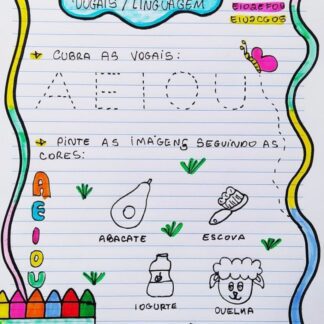 VOGAIS / LINGUAGEM
EI02EF09
EI02CG05
CUBRA AS VOGAIS:
A E I O U
PINTE AS IMAGENS SEGUINDO AS
CORES:
A
E
I
O
U
ABACATE
ESCOVA
IOGURTE
OVELHA